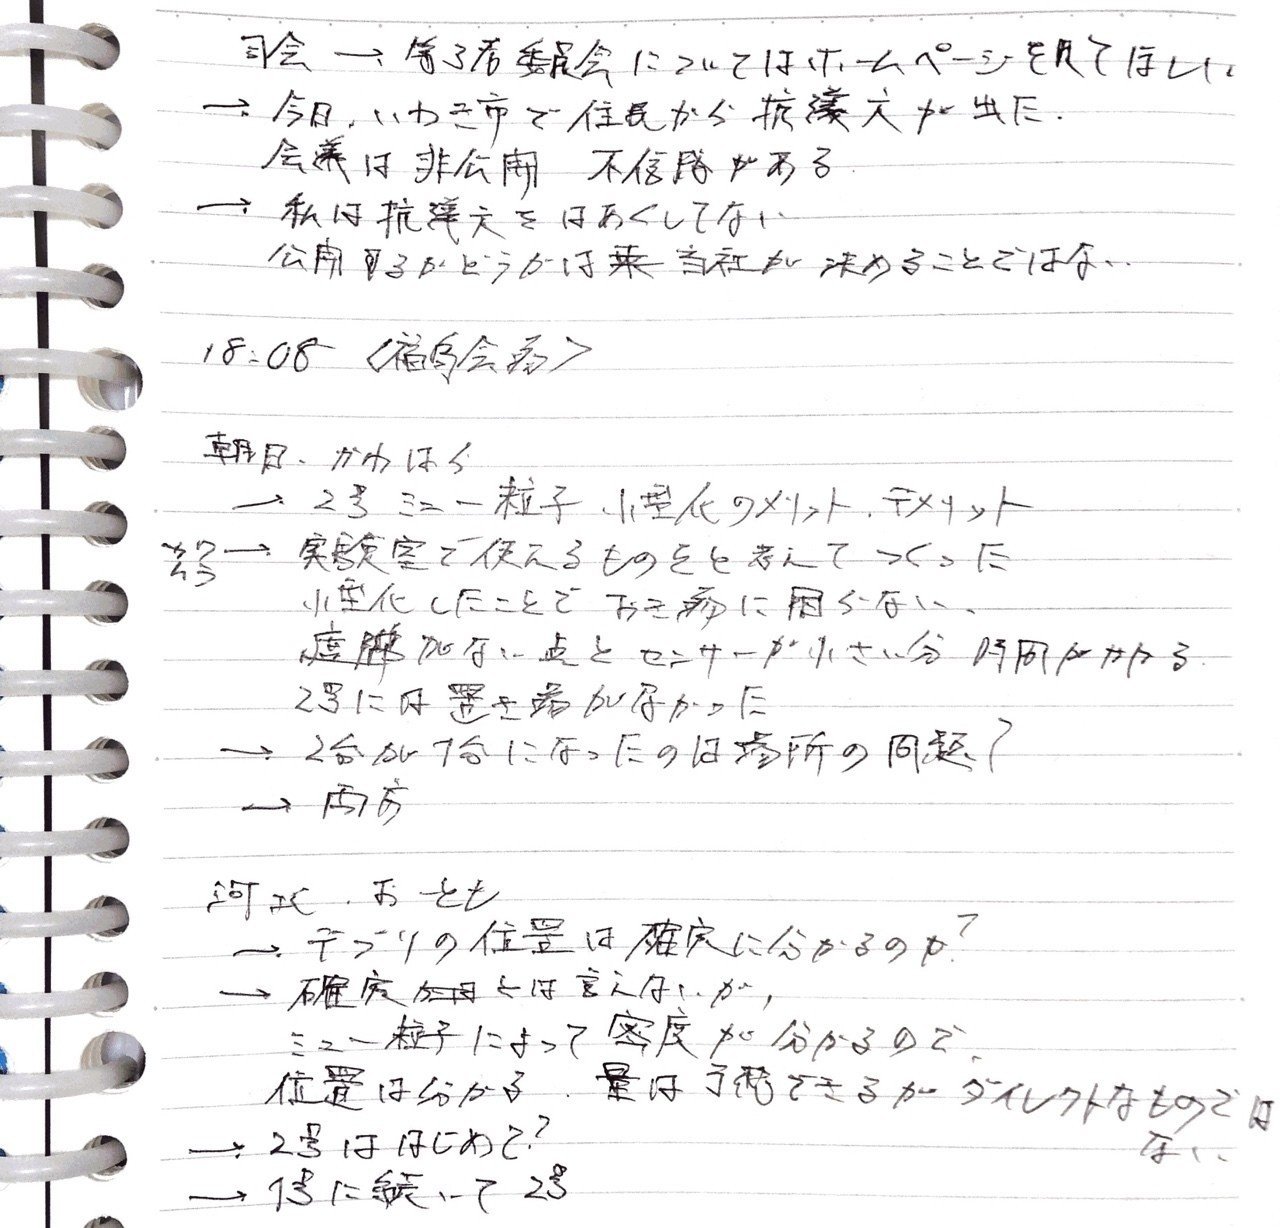 司会 → 第3者委員会についてはホームページを見てほしい
→ 今日、いわき市で住民から抗議文が出た.
会議は非公開 不信感がある
→ 私は抗議文をはあくしてない
公開するかどうかは 当社が決めることではない
18:08 <福島会場>
朝日、かわはら
→ 2号ミュー粒子 小型化のメリット、デメリット
→ 実験室で使えるものをと考えてつくった
小型化したことでおき場に困らない、
がない点とセンサーが小さい分 時間がかかる
2号には置き場がなかった
→ 2台が1台になったのは場所の問題?
→ 両方
河北、おおとも
→ デブリの位置は確実に分かるのか?
→ 確実 とは言えないが,
ミュー粒子によって密度が分かるので、
位置は分かる、量は予想できるがダイレクトなものでは
ない、
→ 2号ははじめて?
→ 1号に続いて2号